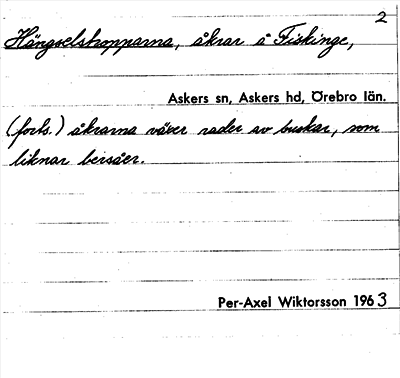 2
Hängselstropparna, åkrar å Fiskinge,
Askers sn, Askers hd, Örebro län.
(forts.) åkrarna växer rader av buskar, som
liknar bersåer.
Per-Axel Wiktorsson 1963